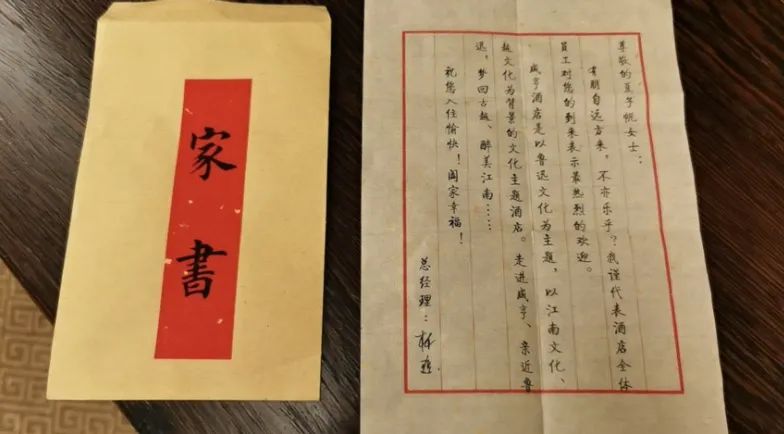 家書
尊敬的夏予悦女士：
有朋自远方来，不亦乐乎？我谨代表酒店全体
员工对您的到来表示最热烈的欢迎。
咸亨酒店是以鲁迅文化为主题，以江南文化、
越文化为背景的文化主题酒店。走进咸亨、亲近鲁
迅，梦回古越、醉美江南……
祝您入住愉快！阖家幸福！
总经理：